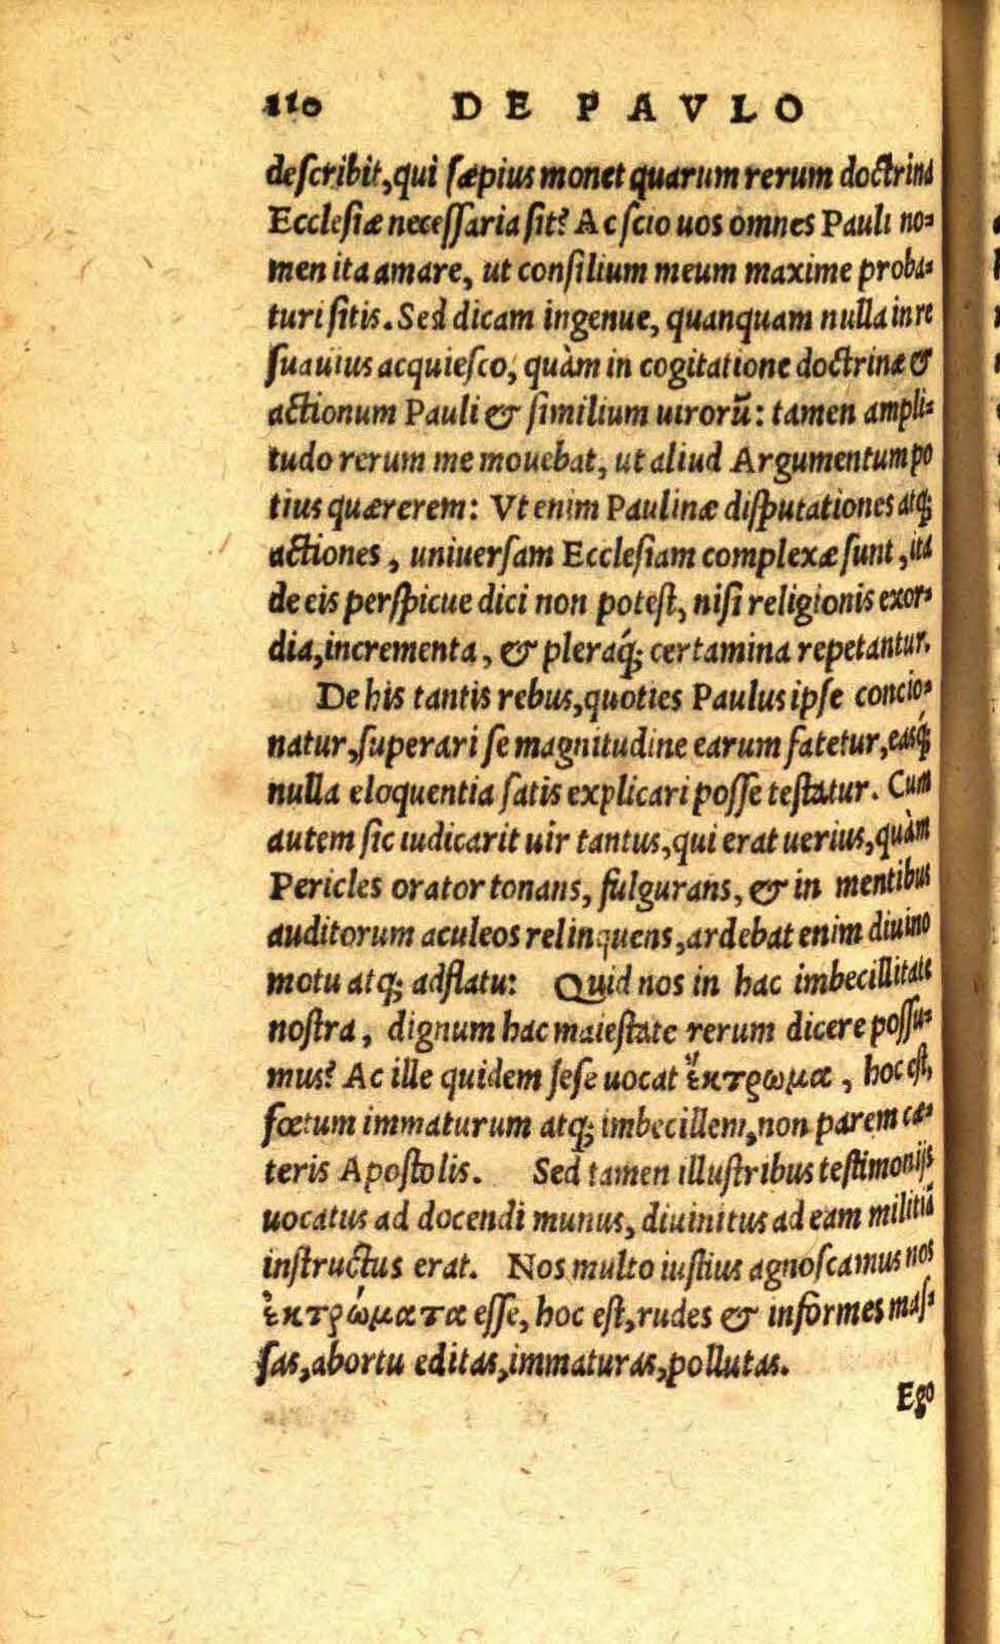 110 DE PAVLO
describit, qui sæpius monet quarum rerum doctrina
Ecclesiæ necessaria sit? Ac scio uos omnes Pauli no=
men ita amare, ut consilium meum maxime proba=
turi sitis. Sed dicam ingenue, quanquam nulla in re
suauius acquiesco, quàm in cogitatione doctrinæ &
actionum Pauli & similium uirorū: tamen ampli=
tudo rerum me mouebat, ut aliud Argumentum po
tius quærerem: Vt enim Paulinæ disputationes atq;
actiones, uniuersam Ecclesiam complexæ sunt, ita
de eis perspicue dici non potest, nisi religionis exor=
dia, incrementa, & pleraq́; certamina repetantur.
De his tantis rebus, quoties Paulus ipse concio=
natur, superari se magnitudine earum fatetur, easq́;
nulla eloquentia satis explicari posse testatur. Cum
autem sic iudicarit uir tantus, qui erat uerius, quàm
Pericles orator tonans, fulgurans, & in mentibus
auditorum aculeos relinquens, ardebat enim diuino
motu atq; adflatu: Quid nos in hac imbecillitate
nostra, dignum hac maiestate rerum dicere possu=
mus? Ac ille quidem sese uocat ἔκτρωμα, hoc est,
fœtum immaturum atq; imbecillem, non parem cæ=
teris Apostolis. Sed tamen illustribus testimonijs
uocatus ad docendi munus, diuinitus ad eam militiā
instructus erat. Nos multo iustius agnoscamus nos
ἐκτρώματα esse, hoc est, rudes & informes mas=
sas, abortu editas, immaturas, pollutas.
Ego